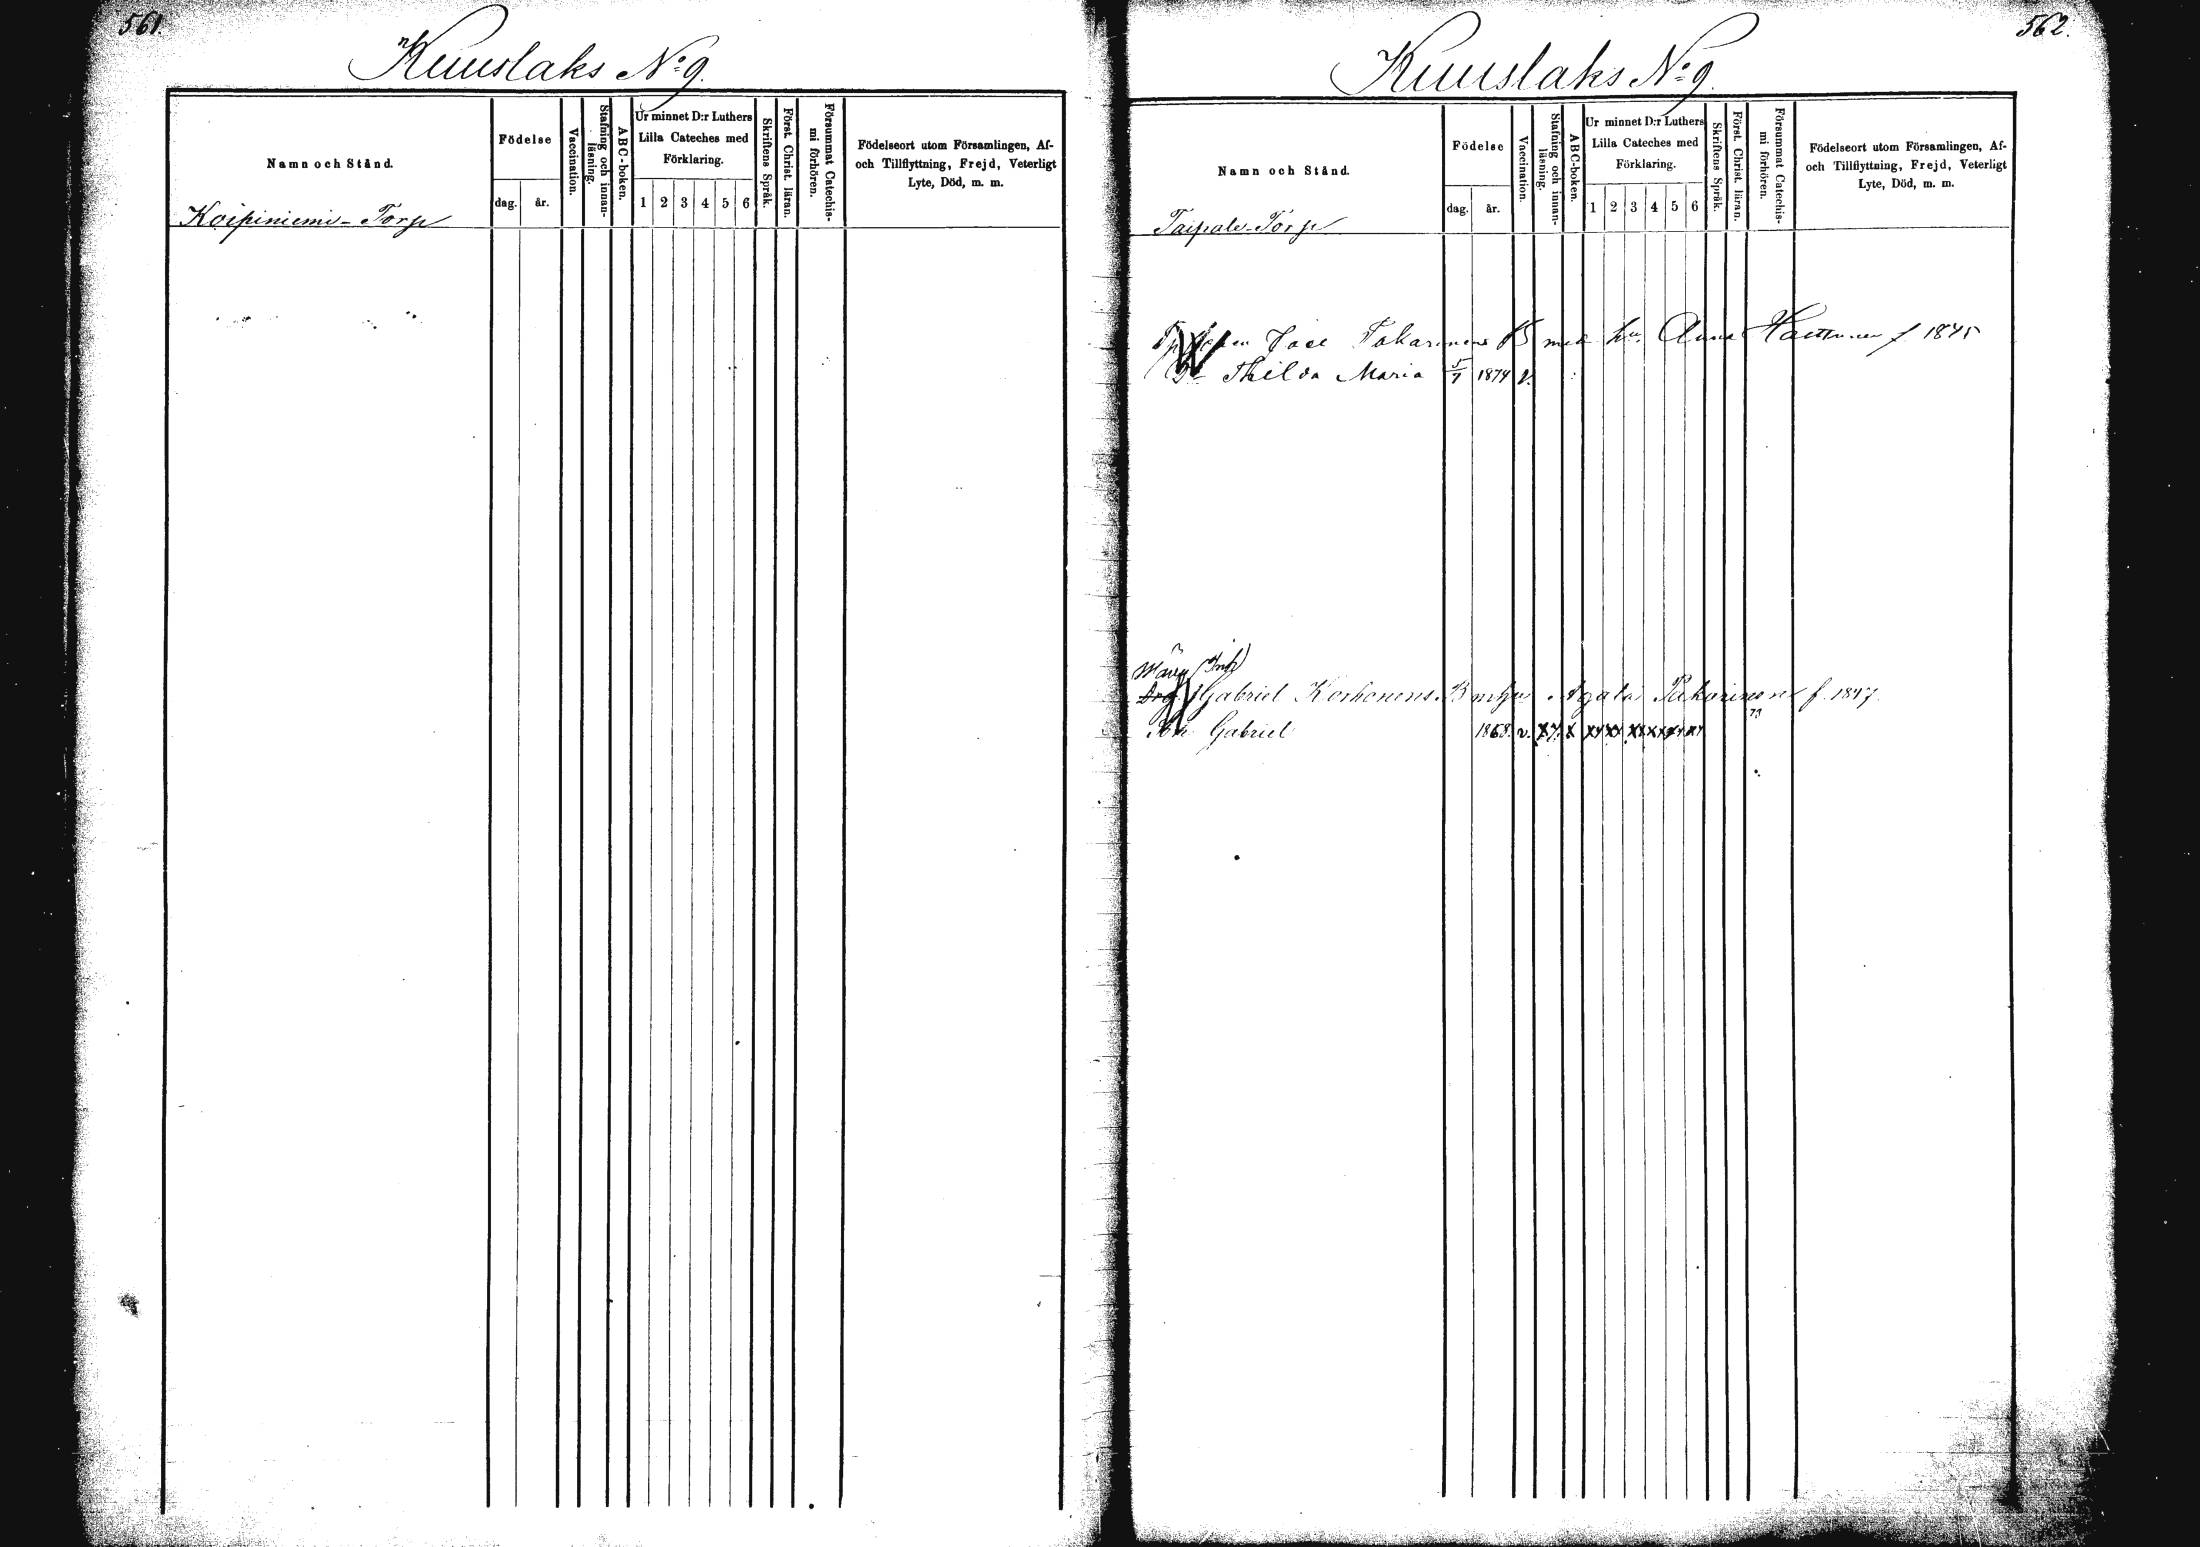 561.
Kuuslaks No 9.
Namn och Stånd.
Födelse
dag. år.
Vaccination.
Stafning och innan-
läsning.
ABC-boken.
Ur minnet D:r Luthers
Lilla Cateches med
Förklaring.
1 2 3 4 5 6
Skriftens Språk.
Först. Christ. läran.
Försummat Catechis-
mi förhören.
Födelseort utom Församlingen, Af-
och Tillflyttning, Frejd, Veterligt
Lyte, Död, m. m.
Koipiniemi-Torp
562.
Kuuslaks No 9.
Namn och Stånd.
Födelse
dag. år.
Vaccination.
Stafning och innan-
läsning.
ABC-boken.
Ur minnet D:r Luthers
Lilla Cateches med
Förklaring.
1 2 3 4 5 6
Skriftens Språk.
Först. Christ. läran.
Försummat Catechis-
mi förhören.
Födelseort utom Församlingen, Af-
och Tillflyttning, Frejd, Veterligt
Lyte, Död, m. m.
Taipale-Torp
Pakarinens B med hu. Anna Hattunen f 1845
Thilda Maria 5/7 1874 v.
Gabriel Korhonens B m hu Agata Pakarinen f. 1847.
Gabriel 1868. v.